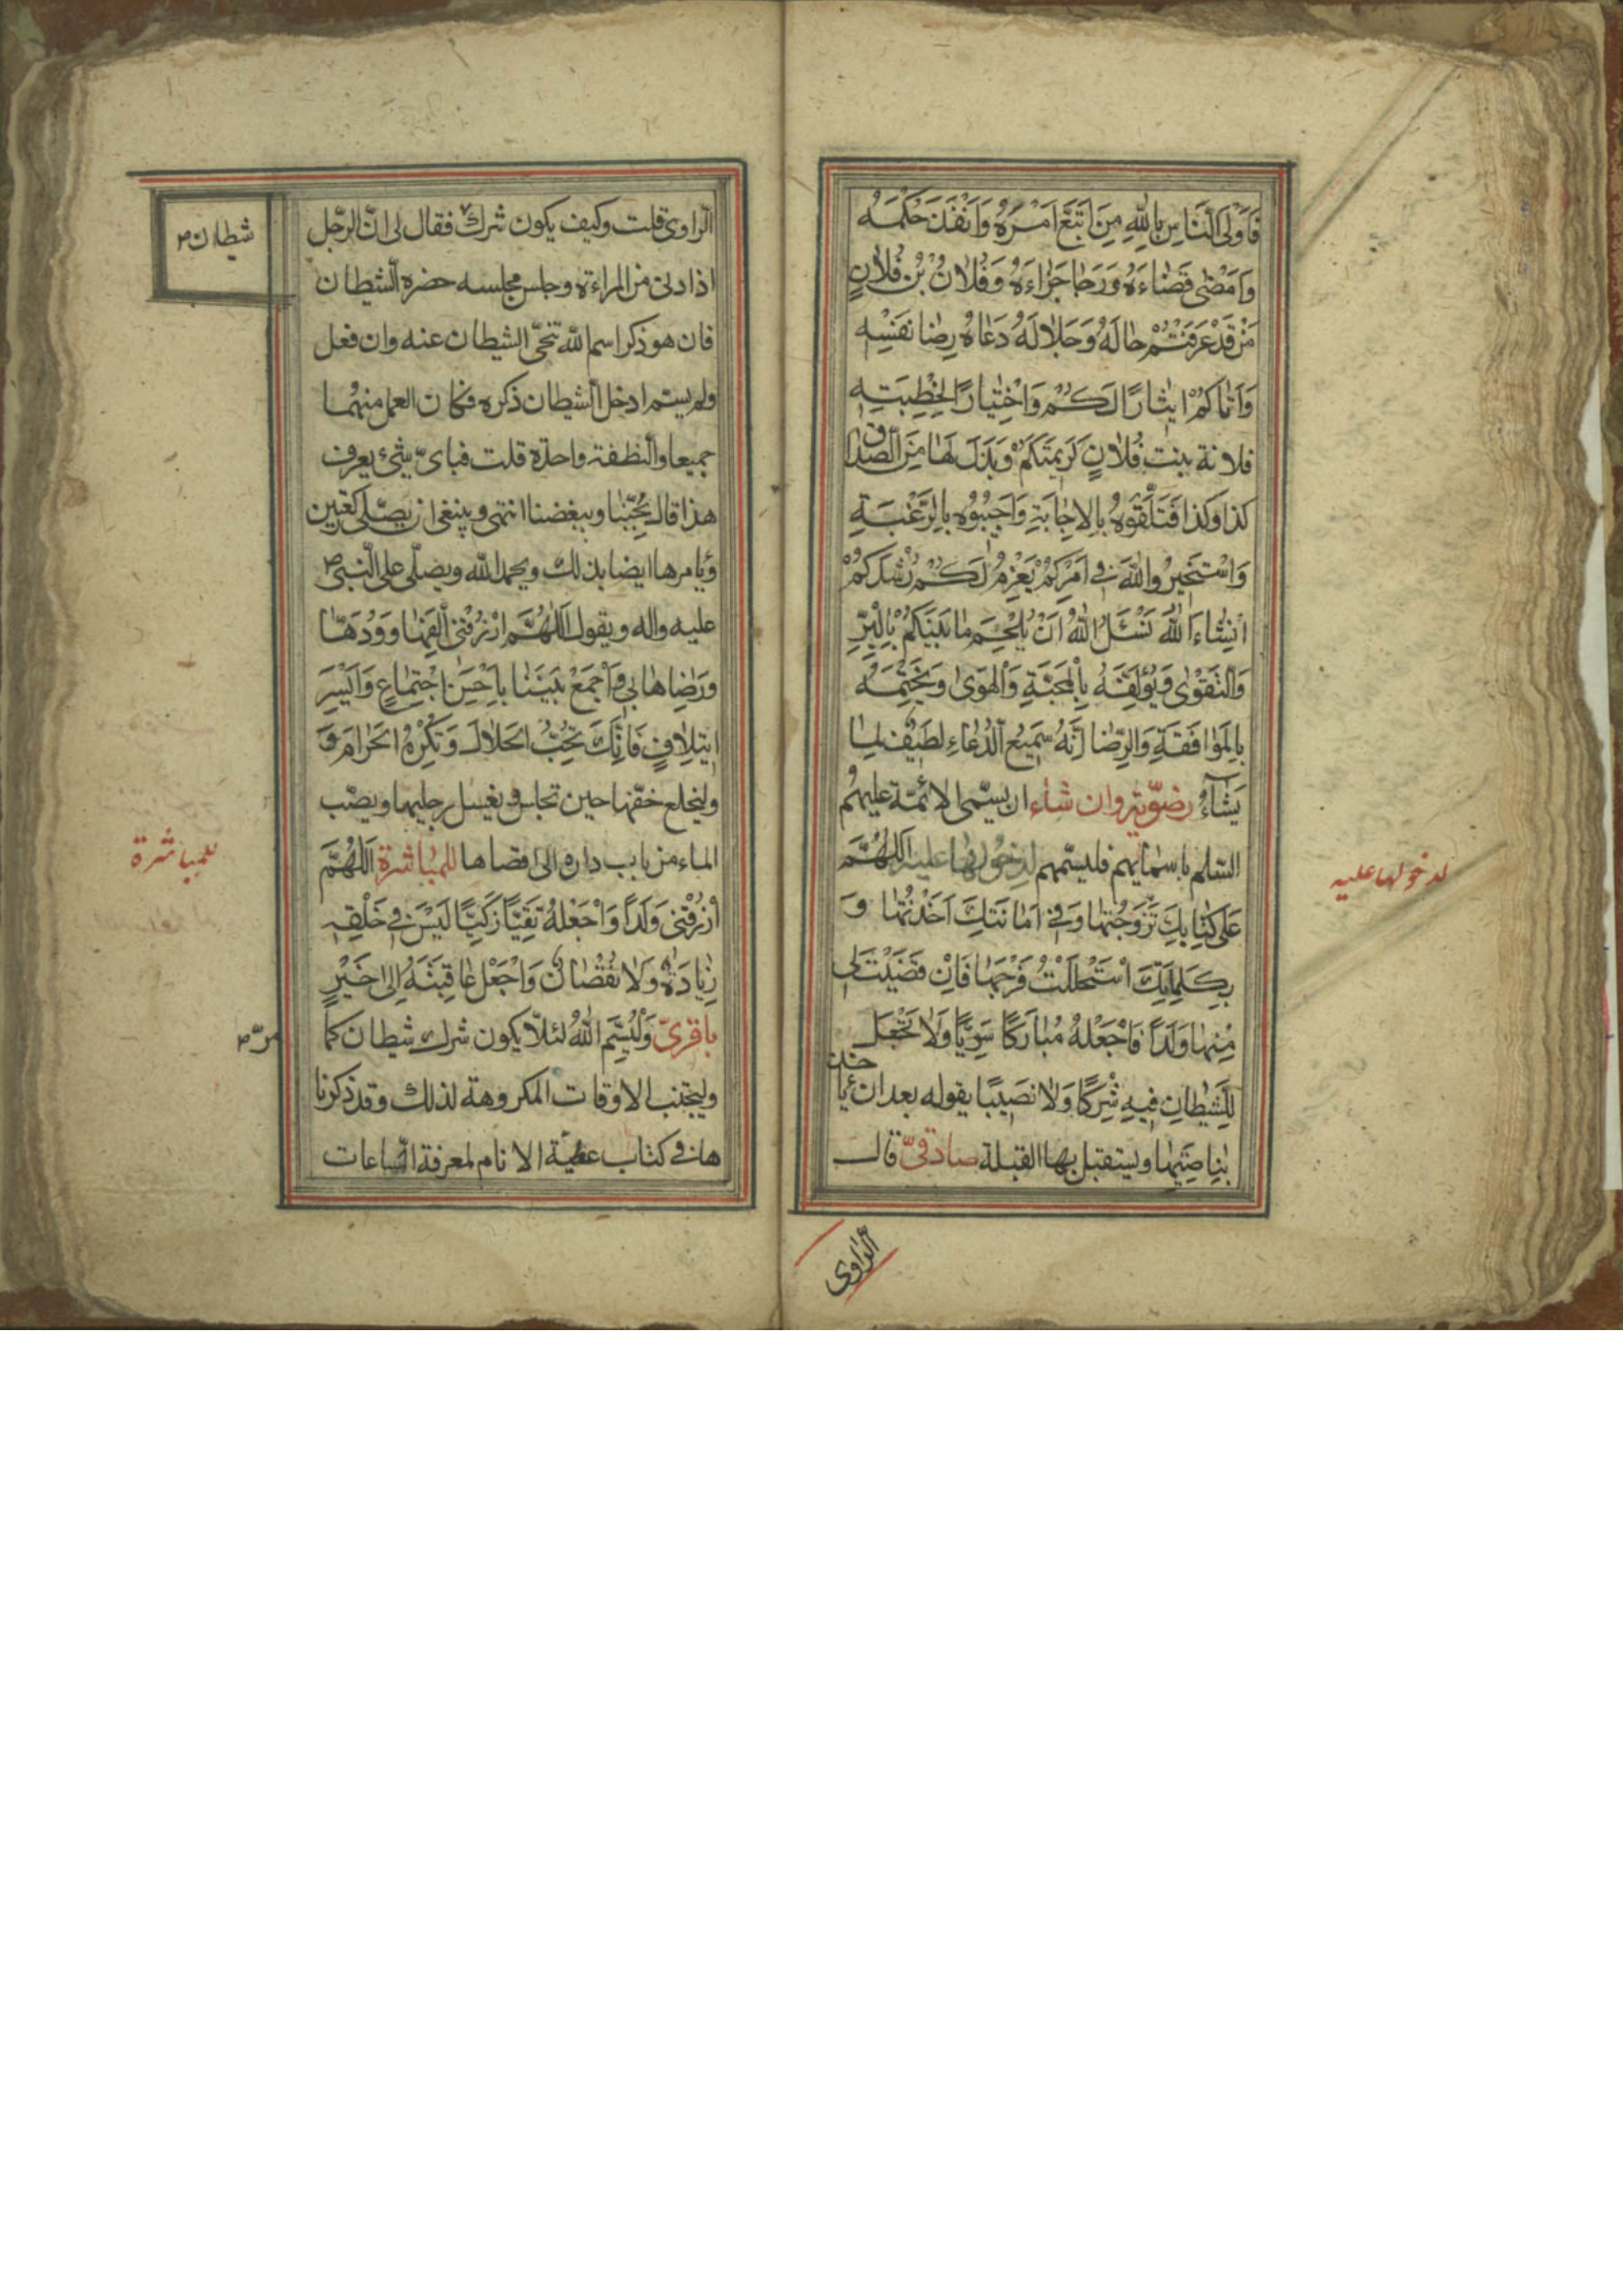 فَاَوْلَى النَّاسِ بِاللّٰهِ مَنِ اتَّبَعَ اَمْرَهُ وَاَنْفَذَ حُكْمَهُ
وَاَمْضٰى قَضٰاءَهُ وَرَجٰا جَزٰاءَهُ وَفُلٰانُ بْنُ فُلٰانٍ
مَنْ قَدْ عَرَفْتُمْ حٰالَهُ وَجَلٰالَهُ دَعٰاهُ رِضٰا نَفْسِهِ
وَاَتٰاكُمْ ايثٰارًا لَكُمْ وَاخْتِيٰارًا لِخِطْبَتِهِ
فلانة بِنْتِ فُلٰانٍ كَرِيمَتَكُمْ وَبَذَلَ لَهٰا مِنَ الصَّدٰاقِ
كَذا وَكَذا فَتَلَقَّوْهُ بِالاِجٰابَةِ وَاَجِيبُوُه بِالرَّغْبَةِ
وَاسْتَخيِرُوا اللّٰهَ فى اَمْرِكُمْ يَعْزِمُ لَكُمْ رُشْدَكُمْ
اِنْشٰاءَ اللّٰهُ نَسْئَلُ اللّٰهَ اَنْ يُلْحِمَ مٰا بَيْنَكُمْ بِالْبِرِّ
وَالتَّقْوٰى وَيُؤَلِّفَهُ بِالْمَحَبَّةِ وَالْهَوٰى وَيَخْتِمَهُ
بِالْمُوٰافَقَةِ وَالرِّضٰا اِنَّهُ سَمِيعُ الدُّعٰاءِ لَطيفٌ لِمٰا
يَشٰاءُ رضويّة وان شاء ان يسمّى الائمّة عليهم
السلم باسمائهم فليسمّهم لدخولها عليه اَللّٰهُمَّ
عَلٰى كِتٰابِكَ تَزَوَّجْتُهٰا وَفى اَمٰانَتِكَ اَخَذْتُهٰا وَ
بِكَلِمٰاتِكَ اسْتَحْلَلْتُ فَرْجَهٰا فَاِنْ قَضَيْتَ لى
مِنْهٰا وَلَدًا فَاجْعَلْهُ مُبٰارَكًا سَوِيًّا وَلٰا تَجْعَلْ
لِلشَّيْطٰانِ فيهِ شِرْكًا وَلٰا نَصيبًا يقوله بعد ان يأخذ
بناصيتها ويستقبل بها القبلة صادقىّ قال
الرّاوى
لدخولها عليه
الرّاوى قلت وكيف يكون شرك فقال لى انّ الرّجل
شيطان ص
اذا دنى من المراءة وجلس مجلسه حضره الشيطان
فان هو ذكر اسم اللّه تنحّى الشيطان عنه وان فعل
ولم يسم ادخل الشيطان ذكره فكان العمل منهما
جميعا والنطفة واحدة قلت فباىّ شئ يعرف
هذا قال بحُبّنا وببغضنا انتهى وينبغى ان يصلّى ركعتين
ويأمرها ايضا بذلك ويحمد اللّه ويصلّى على النّبى ص
عليه واله ويقول اَللّٰهُمَّ ارْزُقْنى اُلْفَتَهٰا وَوُدَّهٰا
وَرِضٰاهٰا بى وَاجْمَعْ بَيْنَنٰا بِاَحْسَنِ اجْتِمٰاعٍ وَاَيْسَرِ
ايتِلٰافٍ فَاِنَّكَ تُحِبُّ الْحَلٰالَ وَتَكْرَهُ الْحَرٰامَ وَ
وليخلع خفّها حين تجلس ويغسل رجليها ويصّب
الماء من باب داره الى اقصاها للمباشرة اَللّٰهُمَّ
للمباشرة
ارْزُقْنى وَلَدًا وَاجْعَلْهُ تَقِيًّا زَكِيًّا لَيْسَ فى خَلْقِهِ
زِيٰادَةٌ وَلٰا نُقْصٰانٌ وَاجْعَلْ عٰاقِبَتَهُ اِلىٰ خَيْرٍ
باقرىّ وَلْيُسَّمِ اللّٰهَ لئلّا يكون شرك شيطان كما
مرّ ص
وليجتنب الاوقات المكروهة لذلك وقد ذكرنا
ها فى كتاب غنية الانام لمعرفة السّاعات